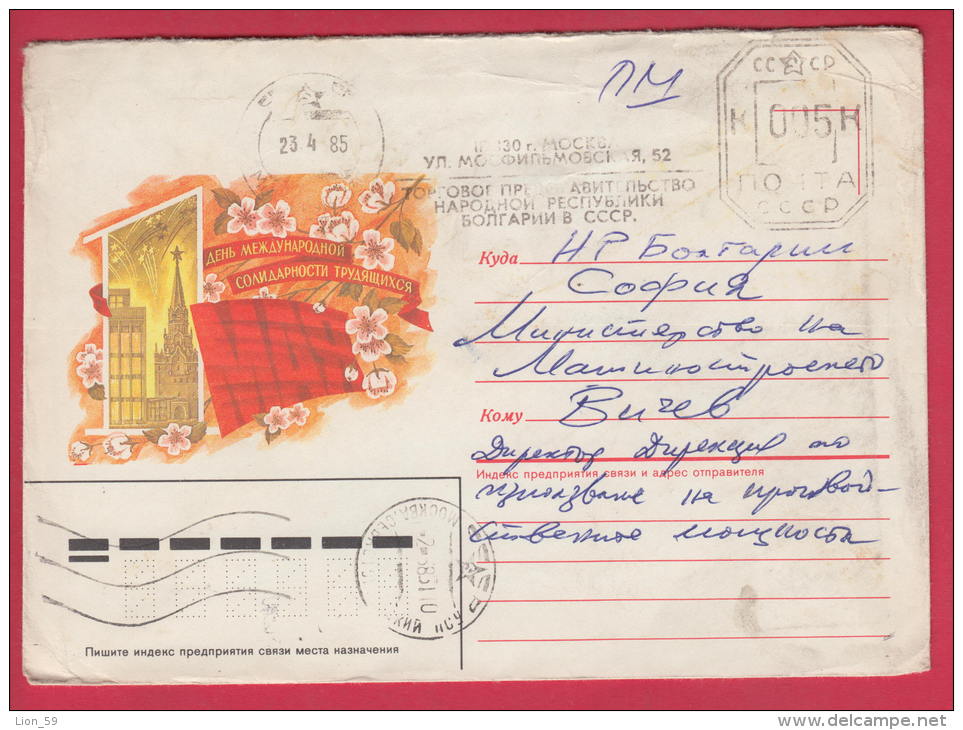 ПМ
СССР
К 005 К
ПОЧТА
СССР
23 4 85
г. МОСКВА
УЛ. МОСФИЛЬМОВСКАЯ, 52
ТОРГОВОЕ ПРЕДСТАВИТЕЛЬСТВО
НАРОДНОЙ РЕСПУБЛИКИ
БОЛГАРИИ В СССР.
ДЕНЬ МЕЖДУНАРОДНОЙ
СОЛИДАРНОСТИ ТРУДЯЩИХСЯ
МИР
Куда НР Болгарии
София
Министерство на
Машиностроенето
Кому Вичев
Директор Дирекция по
Индекс предприятия связи и адрес отправителя
използване на производ-
ствените мощности
МОСКВА
Пишите индекс предприятия связи места назначения
Lion_59
delcampe.net